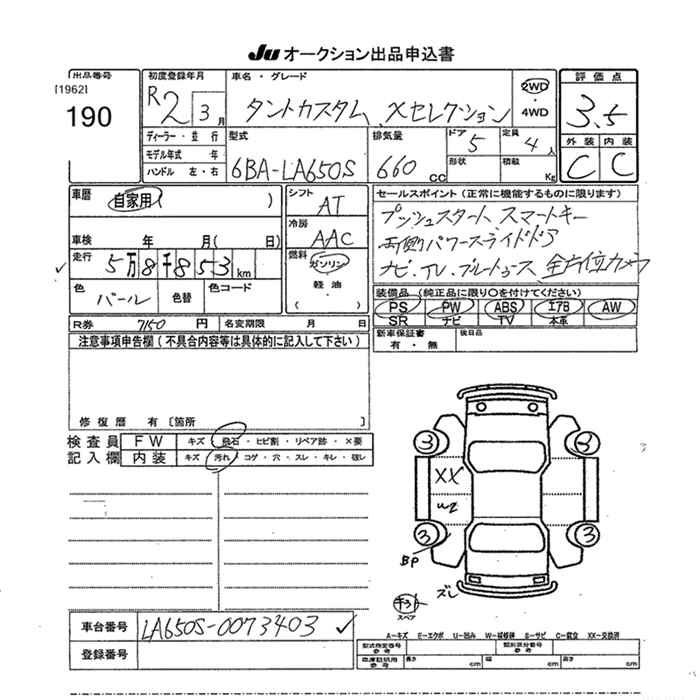 Ju オークション出品申込書
出品番号
[1962]
190
初度登録年月
R2 3月
ディーラー・並行
モデル年式 年
ハンドル 左・右
車名・グレード
タントカスタム Xセレクション
2WD
・
4WD
型式
6BA-LA650S
排気量
660 cc
ドア
5
形状
定員
4人
積載
Kg
評価点
3.5
外装 内装
C C
車歴
自家用( )
車検 年 月( 日)
走行 5万8千853km
色
パール
色替
色コード
シフト
AT
冷房
AAC
燃料
ガソリン
軽油
( )
セールスポイント(正常に機能するものに限ります)
プッシュスタート スマートキー
両側パワースライドドア
ナビ、TV、ブルートゥース、全方位カメラ
装備品(純正品に限り○を付けてください)
PS PW ABS エアB AW
SR ナビ TV 本革
新車保証書
有・無
後日品
R券 7150円
名変期限 月 日
注意事項申告欄(不具合内容等は具体的に記入して下さい)
修復歴 有[箇所 ]
検査員
記入欄
FW キズ・飛石・ヒビ割・リペア跡・×要
内装 キズ・汚れ・コゲ・穴・スレ・キレ・破レ
3
3
XX
U2
3
3
BP
ズレ
スペア
車台番号 LA650S-0073403
登録番号
A-キズ E-エクボ U-凹み W-補修跡 S-サビ C-腐食 XX-交換済
型式指定番号
参考
類別区分番号
参考
車庫証明用
参考
長さ cm
幅 cm
高さ cm